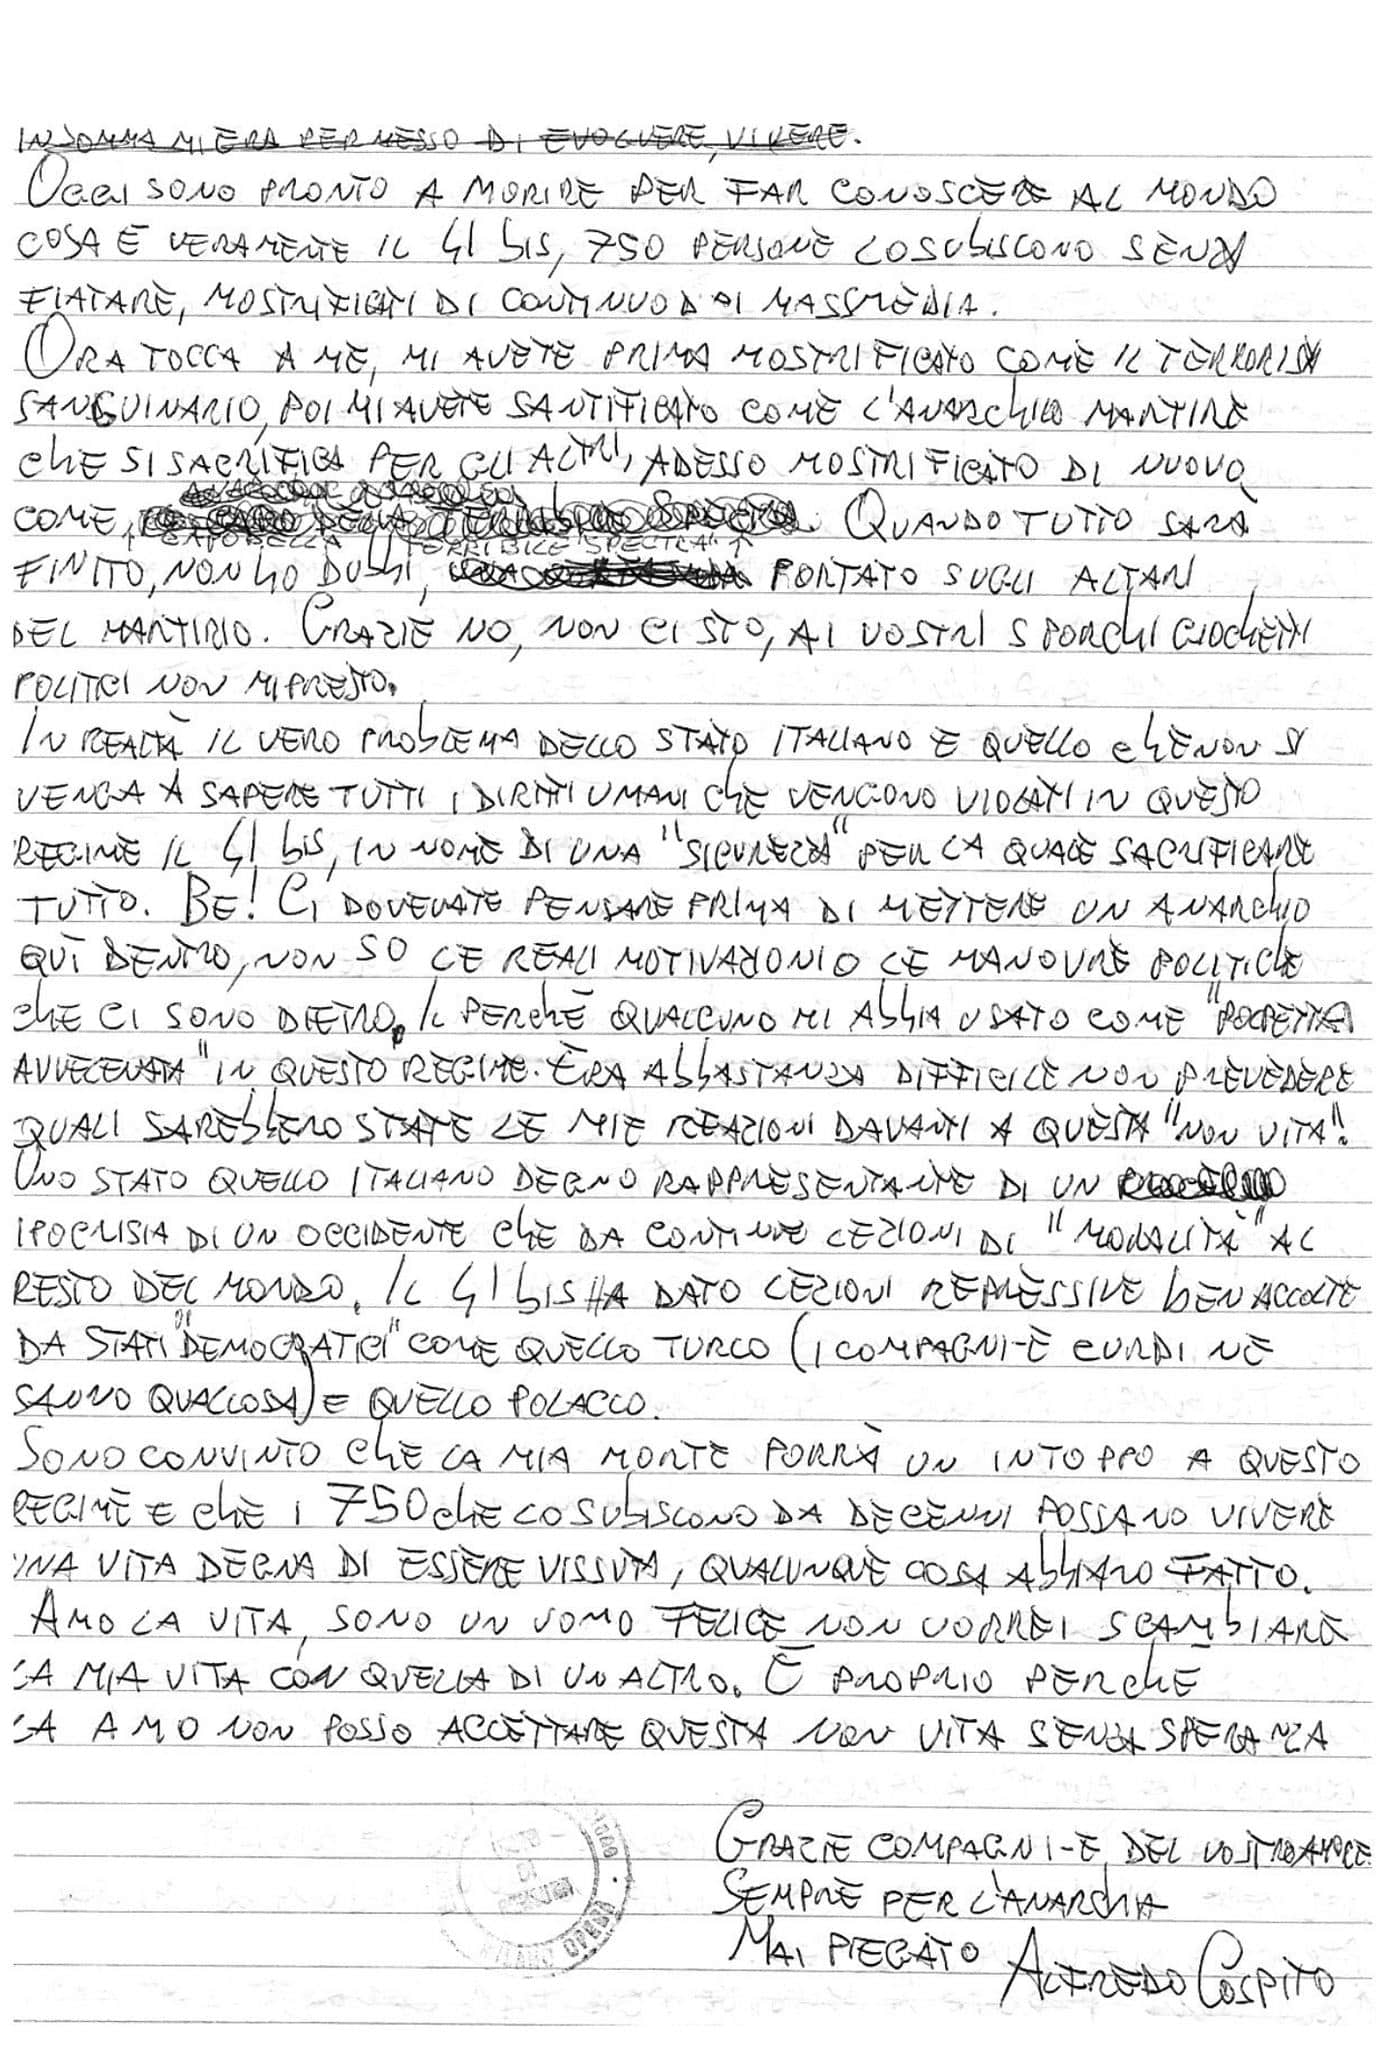 INSOMMA MI ERA PERMESSO DI EVOLVERE, VIVERE.
OGGI SONO PRONTO A MORIRE PER FAR CONOSCERE AL MONDO
COSA E VERAMENTE IL 41 bis, 750 PERSONE LO SUbISCONO SENZA
FIATARE, MOSTRIFICATI DI CONTINUO DAI MASSMEDIA.
ORA TOCCA A ME, MI AVETE PRIMA MOSTRIFICATO COME IL TERRORISTA
SANGUINARIO, POI MI AVETE SANTIFICATO COME L'ANARCHICO MARTIRE
CHE SI SACRIFICA PER GLI ALTRI, ADESSO MOSTRIFICATO DI NUOVO
COME QUANDO TUTTO SARÀ
↑ CAPO DELLA TERRIBILE SPECTRA" ↑
FINITO, NON HO DUbbI, PORTATO SUGLI ALTARI
DEL MARTIRIO. GRAZIE NO, NON CI STO, AI VOSTRI SPORCHI GIOCHETTI
POLITICI NON MI PRESTO.
IN REALTÀ IL VERO PROBLEMA DELLO STATO ITALIANO E QUELLO CHE NON SI
VENGA A SAPERE TUTTI I DIRITTI UMANI CHE VENGONO VIOLATI IN QUESTO
REGIME IL 41 bis, IN NOME DI UNA "SICUREZZA" PER LA QUALE SACRIFICARE
TUTTO. BE! CI DOVEVATE PENSARE PRIMA DI METTERE UN ANARCHICO
QUÌ DENTRO, NON SO LE REALI MOTIVAZIONI O LE MANOVRE POLITICHE
CHE CI SONO DIETRO. IL PERCHÈ QUALCUNO MI AbbIA USATO COME "POLPETTA
AVVELENATA" IN QUESTO REGIME. ERA AbbASTANZA DIFFICILE NON PREVEDERE
QUALI SAREbbERO STATE LE MIE REAZIONI DAVANTI A QUESTA "NON VITA".
UNO STATO QUELLO ITALIANO DEGNO RAPPRESENTANTE DI UN
IPOCRISIA DI UN OCCIDENTE CHE DA CONTINUE LEZIONI DI "MORALITÀ" AL
RESTO DEL MONDO. IL 41 bis HA DATO LEZIONI REPRESSIVE bEN ACCOLTE
DA STATI "DEMOCRATICI" COME QUELLO TURCO (I COMPAGNI-E CURDI NE
SANNO QUALCOSA) E QUELLO POLACCO.
SONO CONVINTO CHE LA MIA MORTE PORRÀ UN INTOPPO A QUESTO
REGIME E CHE I 750 CHE LO SUbISCONO DA DECENNI POSSANO VIVERE
UNA VITA DEGNA DI ESSERE VISSUTA, QUALUNQUE COSA AbbIANO FATTO.
AMO LA VITA, SONO UN UOMO FELICE NON VORREI SCAMbIARE
LA MIA VITA CON QUELLA DI UN ALTRO. È PROPRIO PERCHE
LA AMO NON POSSO ACCETTARE QUESTA NON VITA SENZA SPERANZA
GRAZIE COMPAGNI-E DEL VOSTRO AMORE
SEMPRE PER L'ANARCHIA
MAI PIEGATO ALFREDO COSPITO
MILANO OPERA